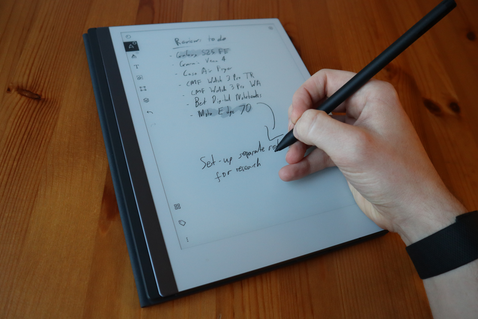 Reviews to do
- Galaxy S25 FE
- Case Air Fryer
- CMF Watch 3 Pro TR
- CMF Watch 3 Pro WA
- Best Digital Notebooks
- Moto Edge 70
Set-up separate
for research